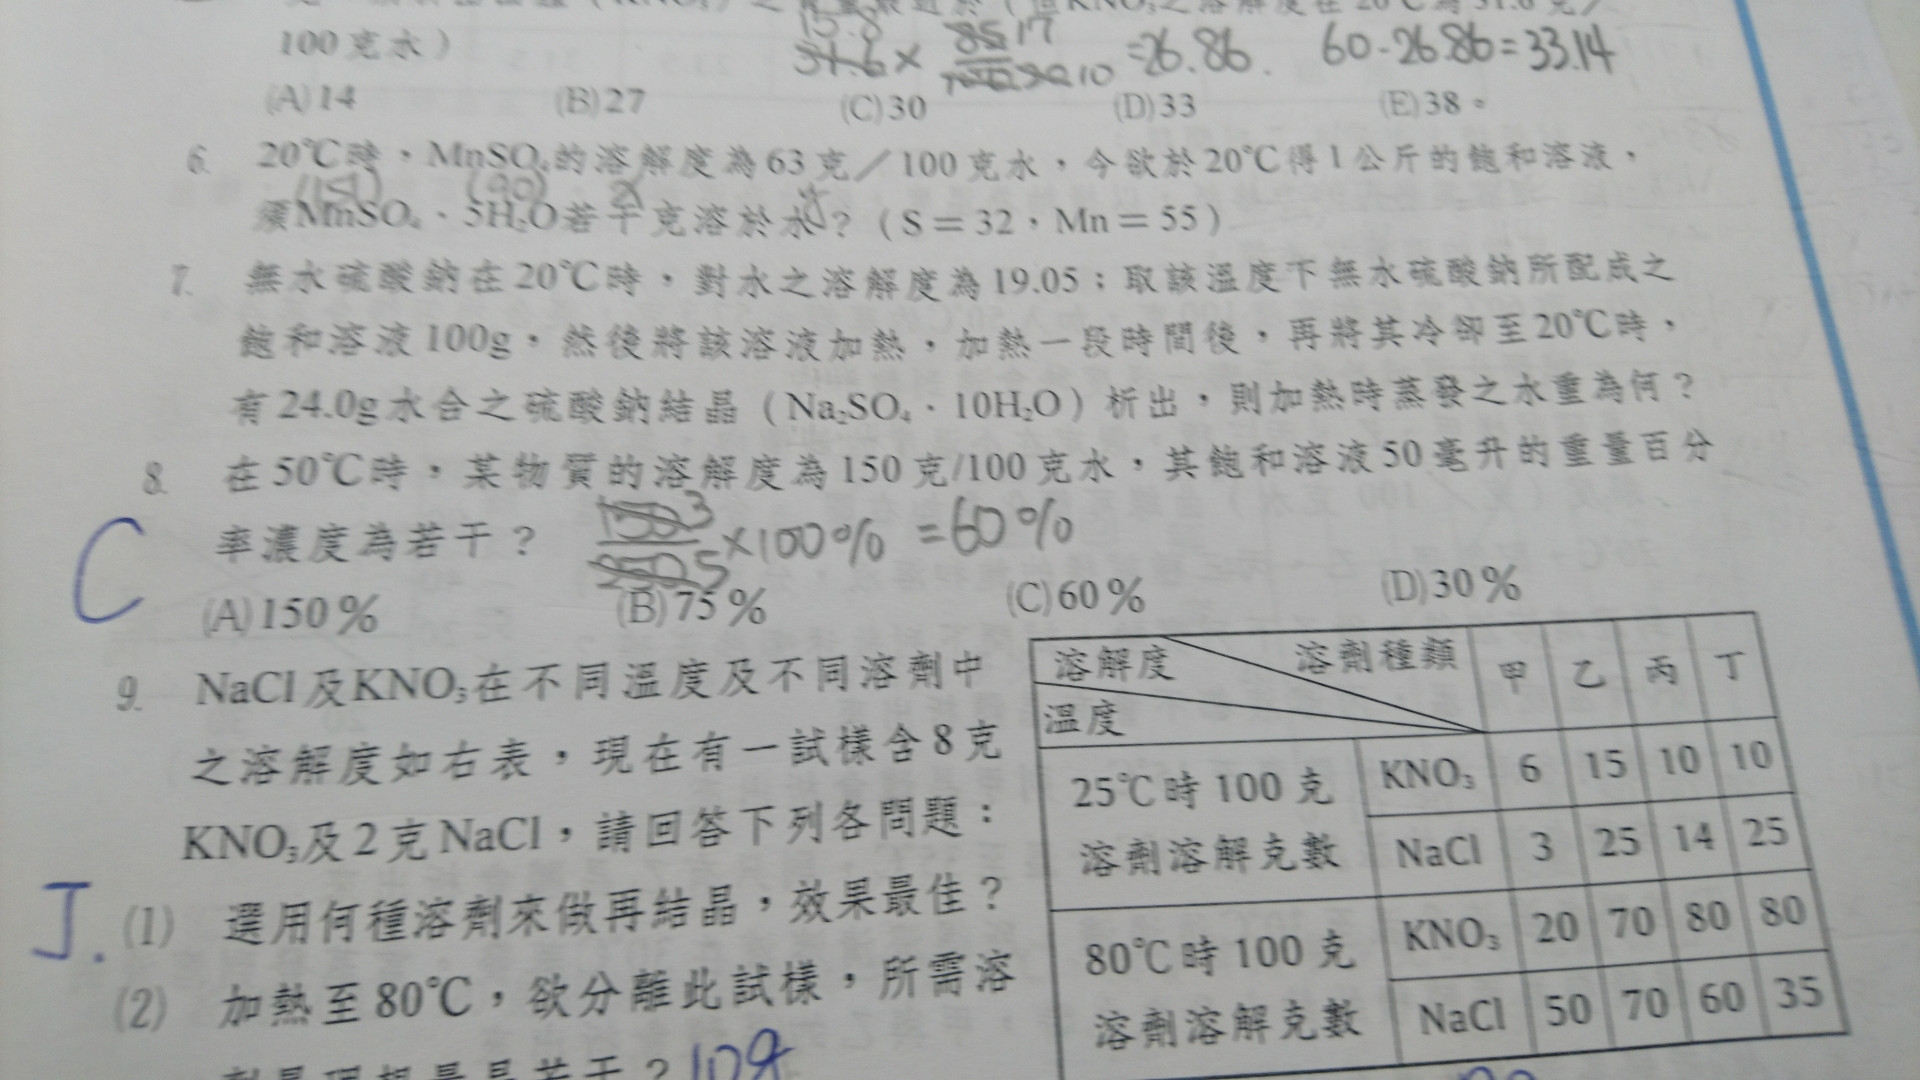 100克水)
15.8
31.6 × 85 17 10 =26.86. 60-26.86=33.14
(A)14 (B)27 (C)30 (D)33 (E)38。
6. 20℃時,MnSO₄的溶解度為63克/100克水,今欲於20℃得1公斤的飽和溶液,
(151) (90)
須MnSO₄·5H₂O若干克溶於水?(S=32,Mn=55)
7. 無水硫酸鈉在20℃時,對水之溶解度為19.05;取該溫度下無水硫酸鈉所配成之
飽和溶液100g,然後將該溶液加熱,加熱一段時間後,再將其冷卻至20℃時,
有24.0g水合之硫酸鈉結晶(Na₂SO₄·10H₂O)析出,則加熱時蒸發之水重為何?
8. 在50℃時,某物質的溶解度為150克/100克水,其飽和溶液50毫升的重量百分
C 率濃度為若干? 150 3 / 250 5 ×100% =60%
(A)150% (B)75% (C)60% (D)30%
9. NaCl及KNO₃在不同溫度及不同溶劑中
之溶解度如右表,現在有一試樣含8克
KNO₃及2克NaCl,請回答下列各問題:
丁. (1) 選用何種溶劑來做再結晶,效果最佳?
(2) 加熱至80℃,欲分離此試樣,所需溶
劑量理想量是若干? 10g
溶解度 溶劑種類 甲 乙 丙 丁
溫度
25℃時100克 KNO₃ 6 15 10 10
溶劑溶解克數 NaCl 3 25 14 25
80℃時100克 KNO₃ 20 70 80 80
溶劑溶解克數 NaCl 50 70 60 35